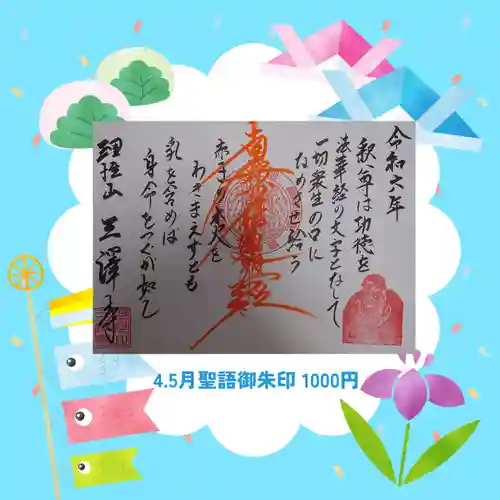 令和六年
釈尊は功徳を
法華経の文字となして
一切衆生の口に
なめさせ給う
赤子
わきまえずとも
乳を含めば
身命をつぐが如し
南無妙法蓮華経
三澤寺
4.5月聖語御朱印 1000円